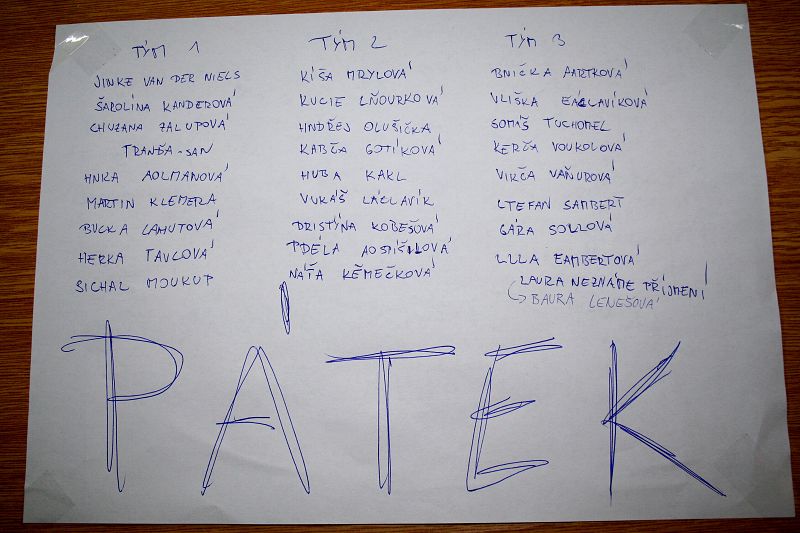 TÝM 1
JINKE VAN DER NIELS
ŠAROLÍNA KANDEROVÁ
CHUZANA ZALUPOVÁ
TRANĎA-SAN
HNKA AOLMANOVÁ
MARTIN KLEMERA
BUCKA LAHUTOVÁ
HERKA TAVLOVÁ
SICHAL MOUKUP
TÝM 2
KÍŠA MRYLOVÁ
KUCIE LŇOURKOVÁ
HNDŘEJ OLUŠIČKA
KABČA GOTÍKOVÁ
HUBA KAKL
VUKÁŠ LÁCLAVÍK
DRISTÝNA KOBEŠOVÁ
PDÉLA
NÁŤA KĚMEČKOVÁ
TÝM 3
BNIČKA AARTKOVÁ
VLIŠKA
SOMÁŠ TUCHOMEL
KERČA VOUKOLOVÁ
VIKČA VAŇUROVÁ
LTEFAN SAMBERT
GÁRA SOLLOVÁ
LULA EAMBERTOVÁ
LAURA NEZNÁME PŘÍJMENÍ
BAURA LENEŠOVÁ
PÁTEK